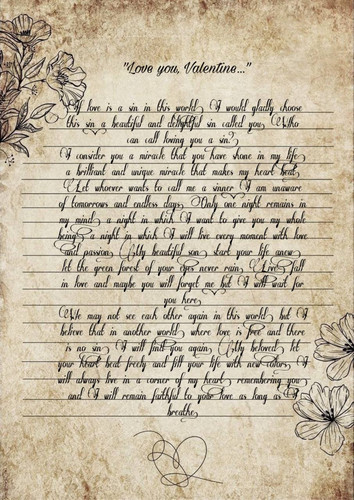 "Love you, Valentine..."
If love is a sin in this world, I would gladly choose
this sin a beautiful and delightful sin called you, Who
can call loving you a sin?
I consider you a miracle that you have shone in my life,
a brilliant and unique miracle that makes my heart beat,
Let whoever wants to call me a sinner, I am unaware
of tomorrows and endless days, Only one night remains in
my mind, a night in which I want to give you my whole
being, a night in which I will live every moment with love
and passion, My beautiful son, start your life anew,
let the green forest of your eyes never rain, Live, fall
in love and maybe you will forget me but I will wait for
you here,
We may not see each other again in this world, but I
believe that in another world, where love is free and there
is no sin, I will find you again, My beloved, let
your heart beat freely and fill your life with new colors, I
will always live in a corner of my heart, remembering you
and I will remain faithful to your love as long as I
breathe,